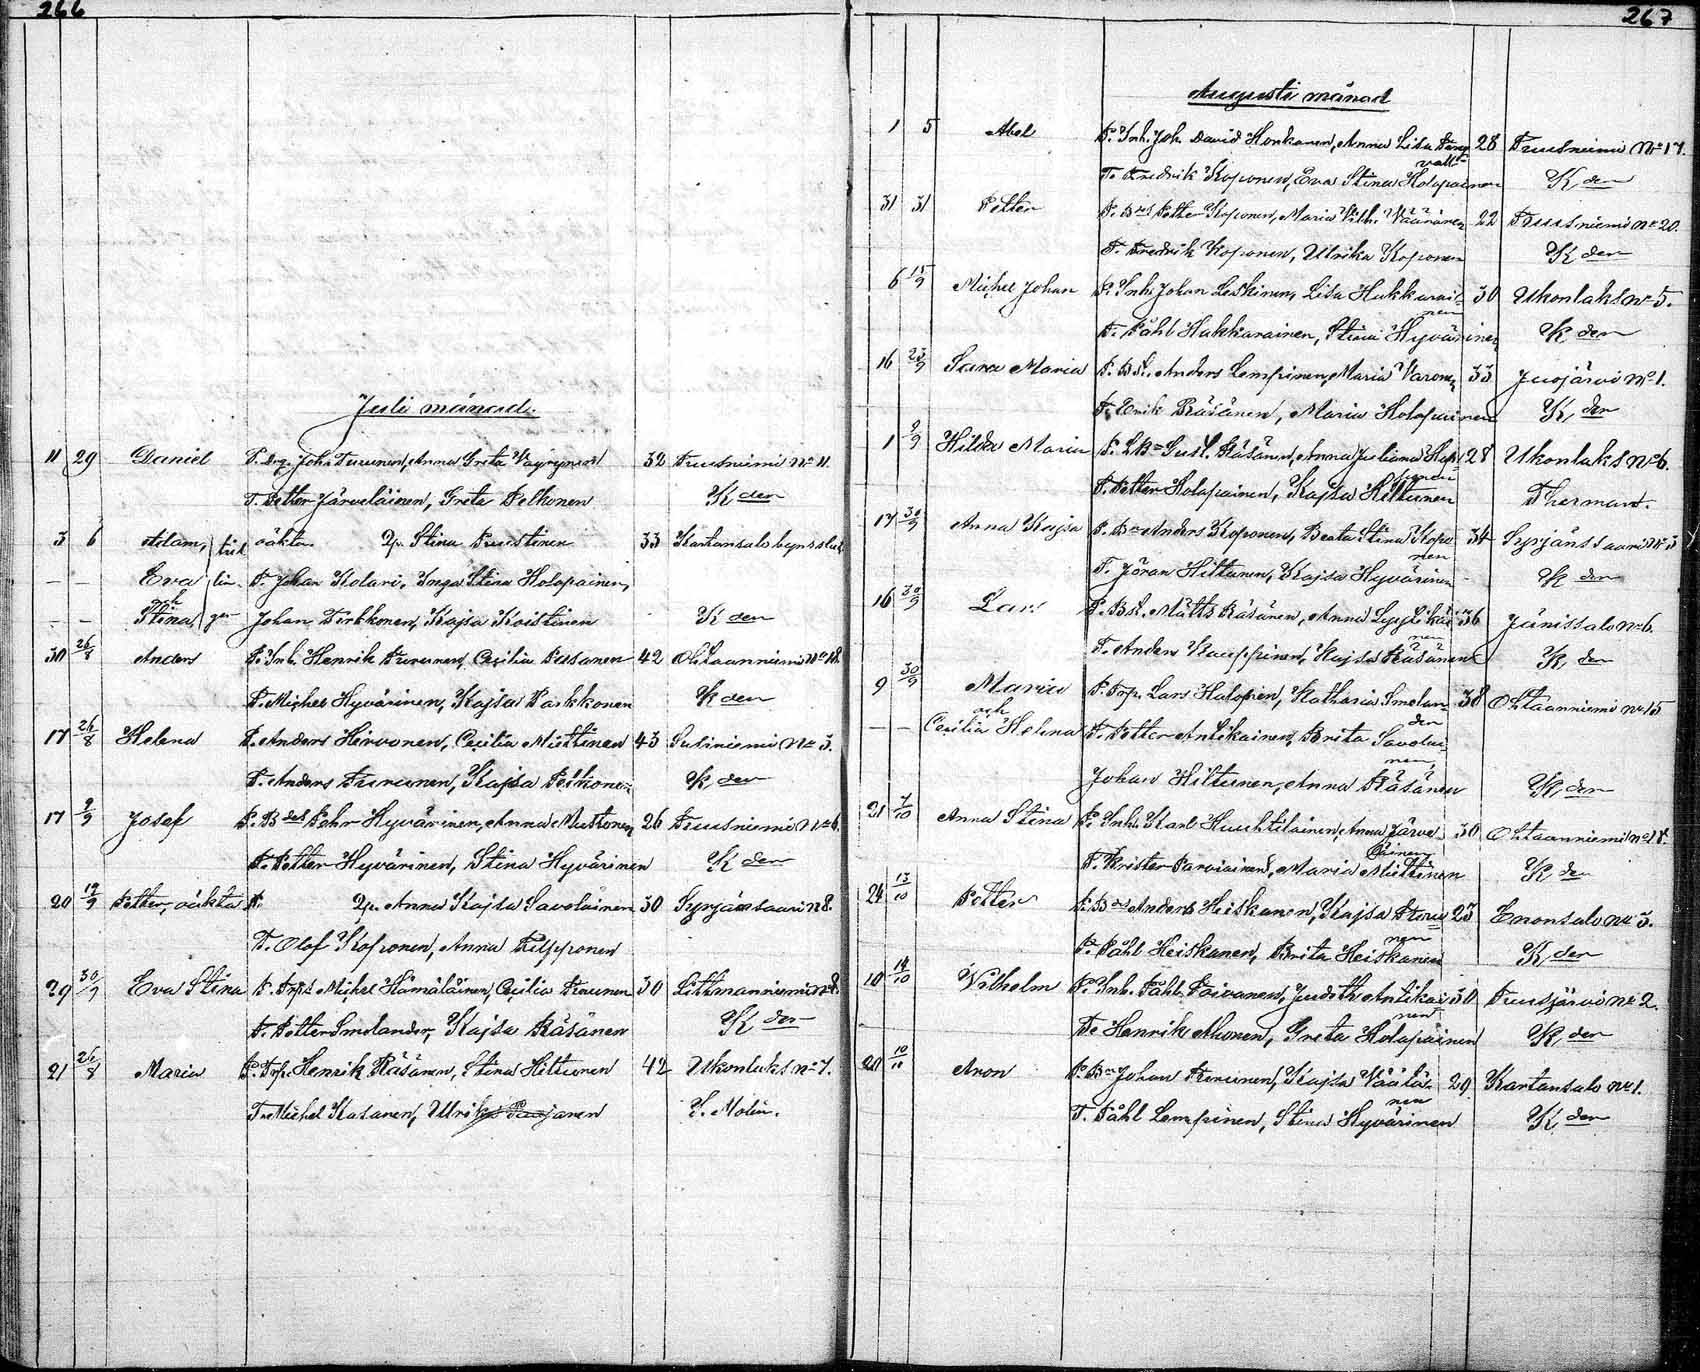 266
Juli månad.
11 29 Daniel P. Drg. Joh. Turunen, Anna Greta Väyrynen 32 Tuusniemi No 11.
T. Petter Järveläinen, Greta Pelkonen K den
3 6 Adam, oäkta Qp. Stina Puustinen 33 Kartansalo
— — Eva T. Johan Kolari, Inga Stina Holopainen,
— — Stina Johan Pirkkonen, Kajsa Koistinen K den
30 26/8 Anders P. Inh. Henrik Turunen, Cecilia Pasanen 42 Ohtaanniemi No 18.
T. Michel Hyvärinen, Kajsa K den
17 26/8 Helena P. Anders Hirvonen, Cecilia Miettinen 43 Susiniemi No 3.
T. Anders Turunen, Kajsa Pelkonen K den
17 2/9 Josef P. Bdes Pehr Hyvärinen, Anna Mustonen 26 Tuusniemi No 6.
T. Petter Hyvärinen, Stina Hyvärinen K den
20 19/9 Petter, oäkta P. Qp. Anna Kajsa Savolainen 30 Syrjänsaari No 8.
T. Olof Koponen, Anna
29 30/9 Eva Stina P. Michel Hämäläinen, Cecilia Turunen 30 Littmanniemi No 8.
T. Petter Smolander, Kajsa Räsänen K den
21 26/8 Maria P. Trp. Henrik Räsänen, Stina Hiltunen 42 Ukonlaks No 7.
T. Michel Kasanen, Ulrika Paajanen Molin.
267
Augusti månad
1 5 Abel P. Inh. Joh. David Honkanen, Anna Lisa 28 Tuusniemi No 17.
T. Fredrik Koponen, Eva Stina Holopainen K den
31 31 Petter P. Bds Petter Koponen, Maria Vilh. Väänänen 22 Tuusniemi No 20.
T. Fredrik Koponen, Ulrika Koponen K den
6 15/9 Michel Johan P. Inh. Johan Leskinen, Lisa Hukkarai= 30 Ukonlaks No 5.
nen
T. Påhl Hukkarainen, Stina Hyvärinen K den
16 23/9 Sara Maria P. Anders Lempinen, Maria Varonen 33 Juojärvi No 1.
T. Erik Räsänen, Maria Holopainen K den
1 2/9 Hilda Maria P. Gust. Räsänen, Anna Juliana 28 Ukonlaks No 6.
T. Petter Holopainen, Kajsa Hiltunen Therman.
17 30/9 Anna Kajsa P. Bn Anders Koponen, Beata Stina Kopo 34 Syrjänsaari No 3
nen
T. Jöran Hiltunen, Kajsa Hyvärinen K den
16 30/9 Lars P. Matts Räsänen, Anna Lyytikäi 36 Jänissalo No 6.
nen
T. Anders Kauppinen, Kajsa Räsänen K den
9 30/9 Maria P. Trp. Lars Halonen, Katharia Smolan= 38 Ohtaanniemi No 15
och der
— — Cecilia Helena T. Petter Antikainen, Brita Savolai
nen,
Johan Hiltunen, Anna Räsänen K den
21 7/10 Anna Stina P. Inh. Karl Huuhtilainen, Anna Järve 30 Ohtaanniemi No 18.
läinen
T. Krister Parviainen, Maria Miettinen K den
24 13/10 Petter P. Bds Anders Heiskanen, Kajsa Toiva 23 Enonsalo No 3.
nen
T. Påhl Heiskanen, Brita Heiskanen K den
10 14/10 Wilhelm P. Inh. Påhl Toivanen, Judith Antikai 30 Tuusjärvi No 2.
nen
T. Henrik Ahonen, Greta Holopainen K den
20 10/11 Aron P. Bn Johan Turunen, Kajsa Väätä= 29 Kartansalo No 1.
nen
T. Påhl Lempinen, Stina Hyvärinen K den